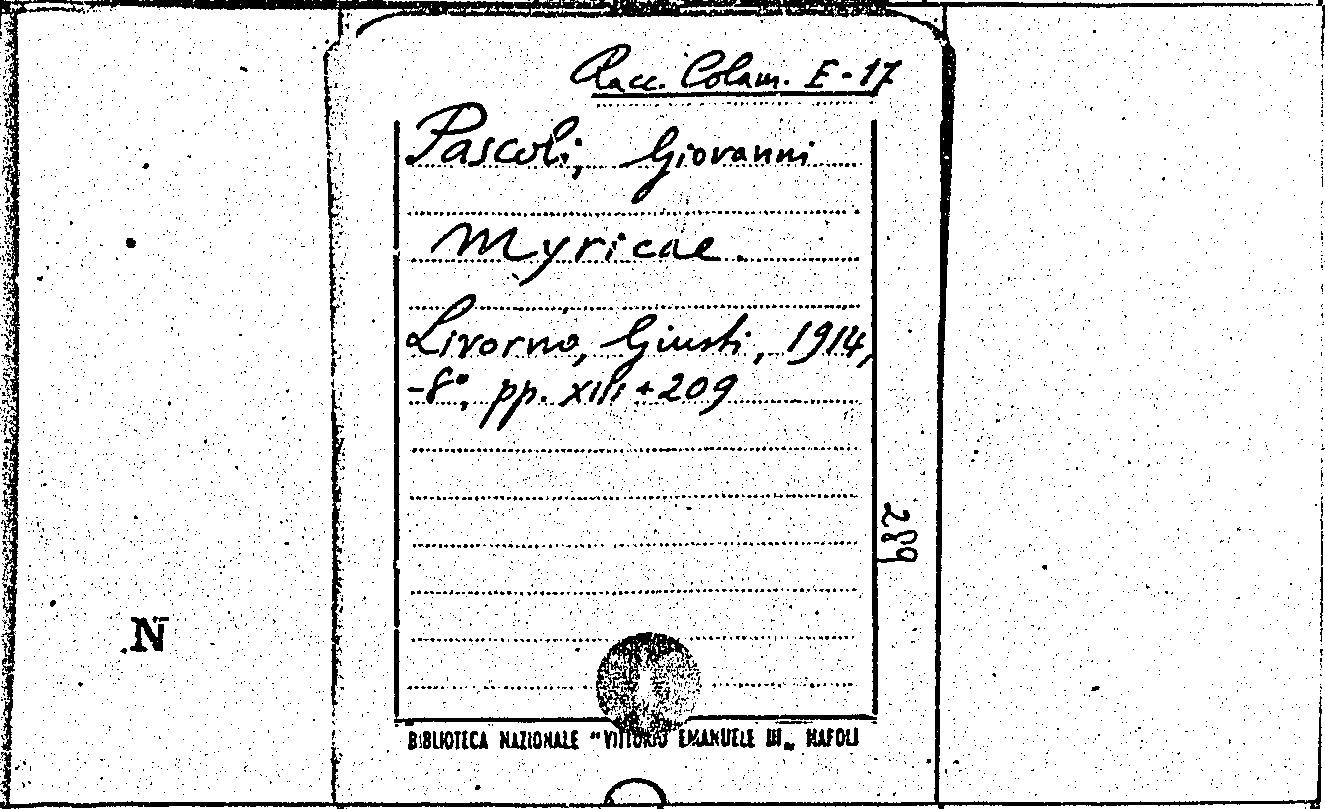 Racc. Colam. E-17
Pascoli, Giovanni
Myricae.
Livorno, Giusti, 1914,
-8°, pp. XIII+209
289
N
BIBLIOTECA NAZIONALE "VITTORIO EMANUELE III„ NAPOLI